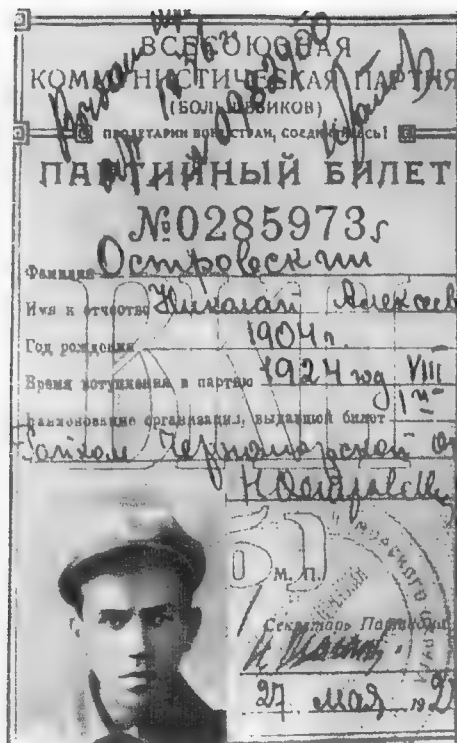 ВСЕСОЮЗНАЯ
КОММУНИСТИЧЕСКАЯ ПАРТИЯ
(БОЛЬШЕВИКОВ)
ПРОЛЕТАРИИ ВСЕХ СТРАН, СОЕДИНЯЙТЕСЬ!
ПАРТИЙНЫЙ БИЛЕТ
№0285973
Фамилия Островский
Имя и отчество Николай Алексеев
Год рождения 1904 г.
Время вступления в партию 1924 год VIII
Наименование организации, выдавшей билет
Райком Черноморской
Н Островский
М. П.
Секретарь Парткома
27 мая 192